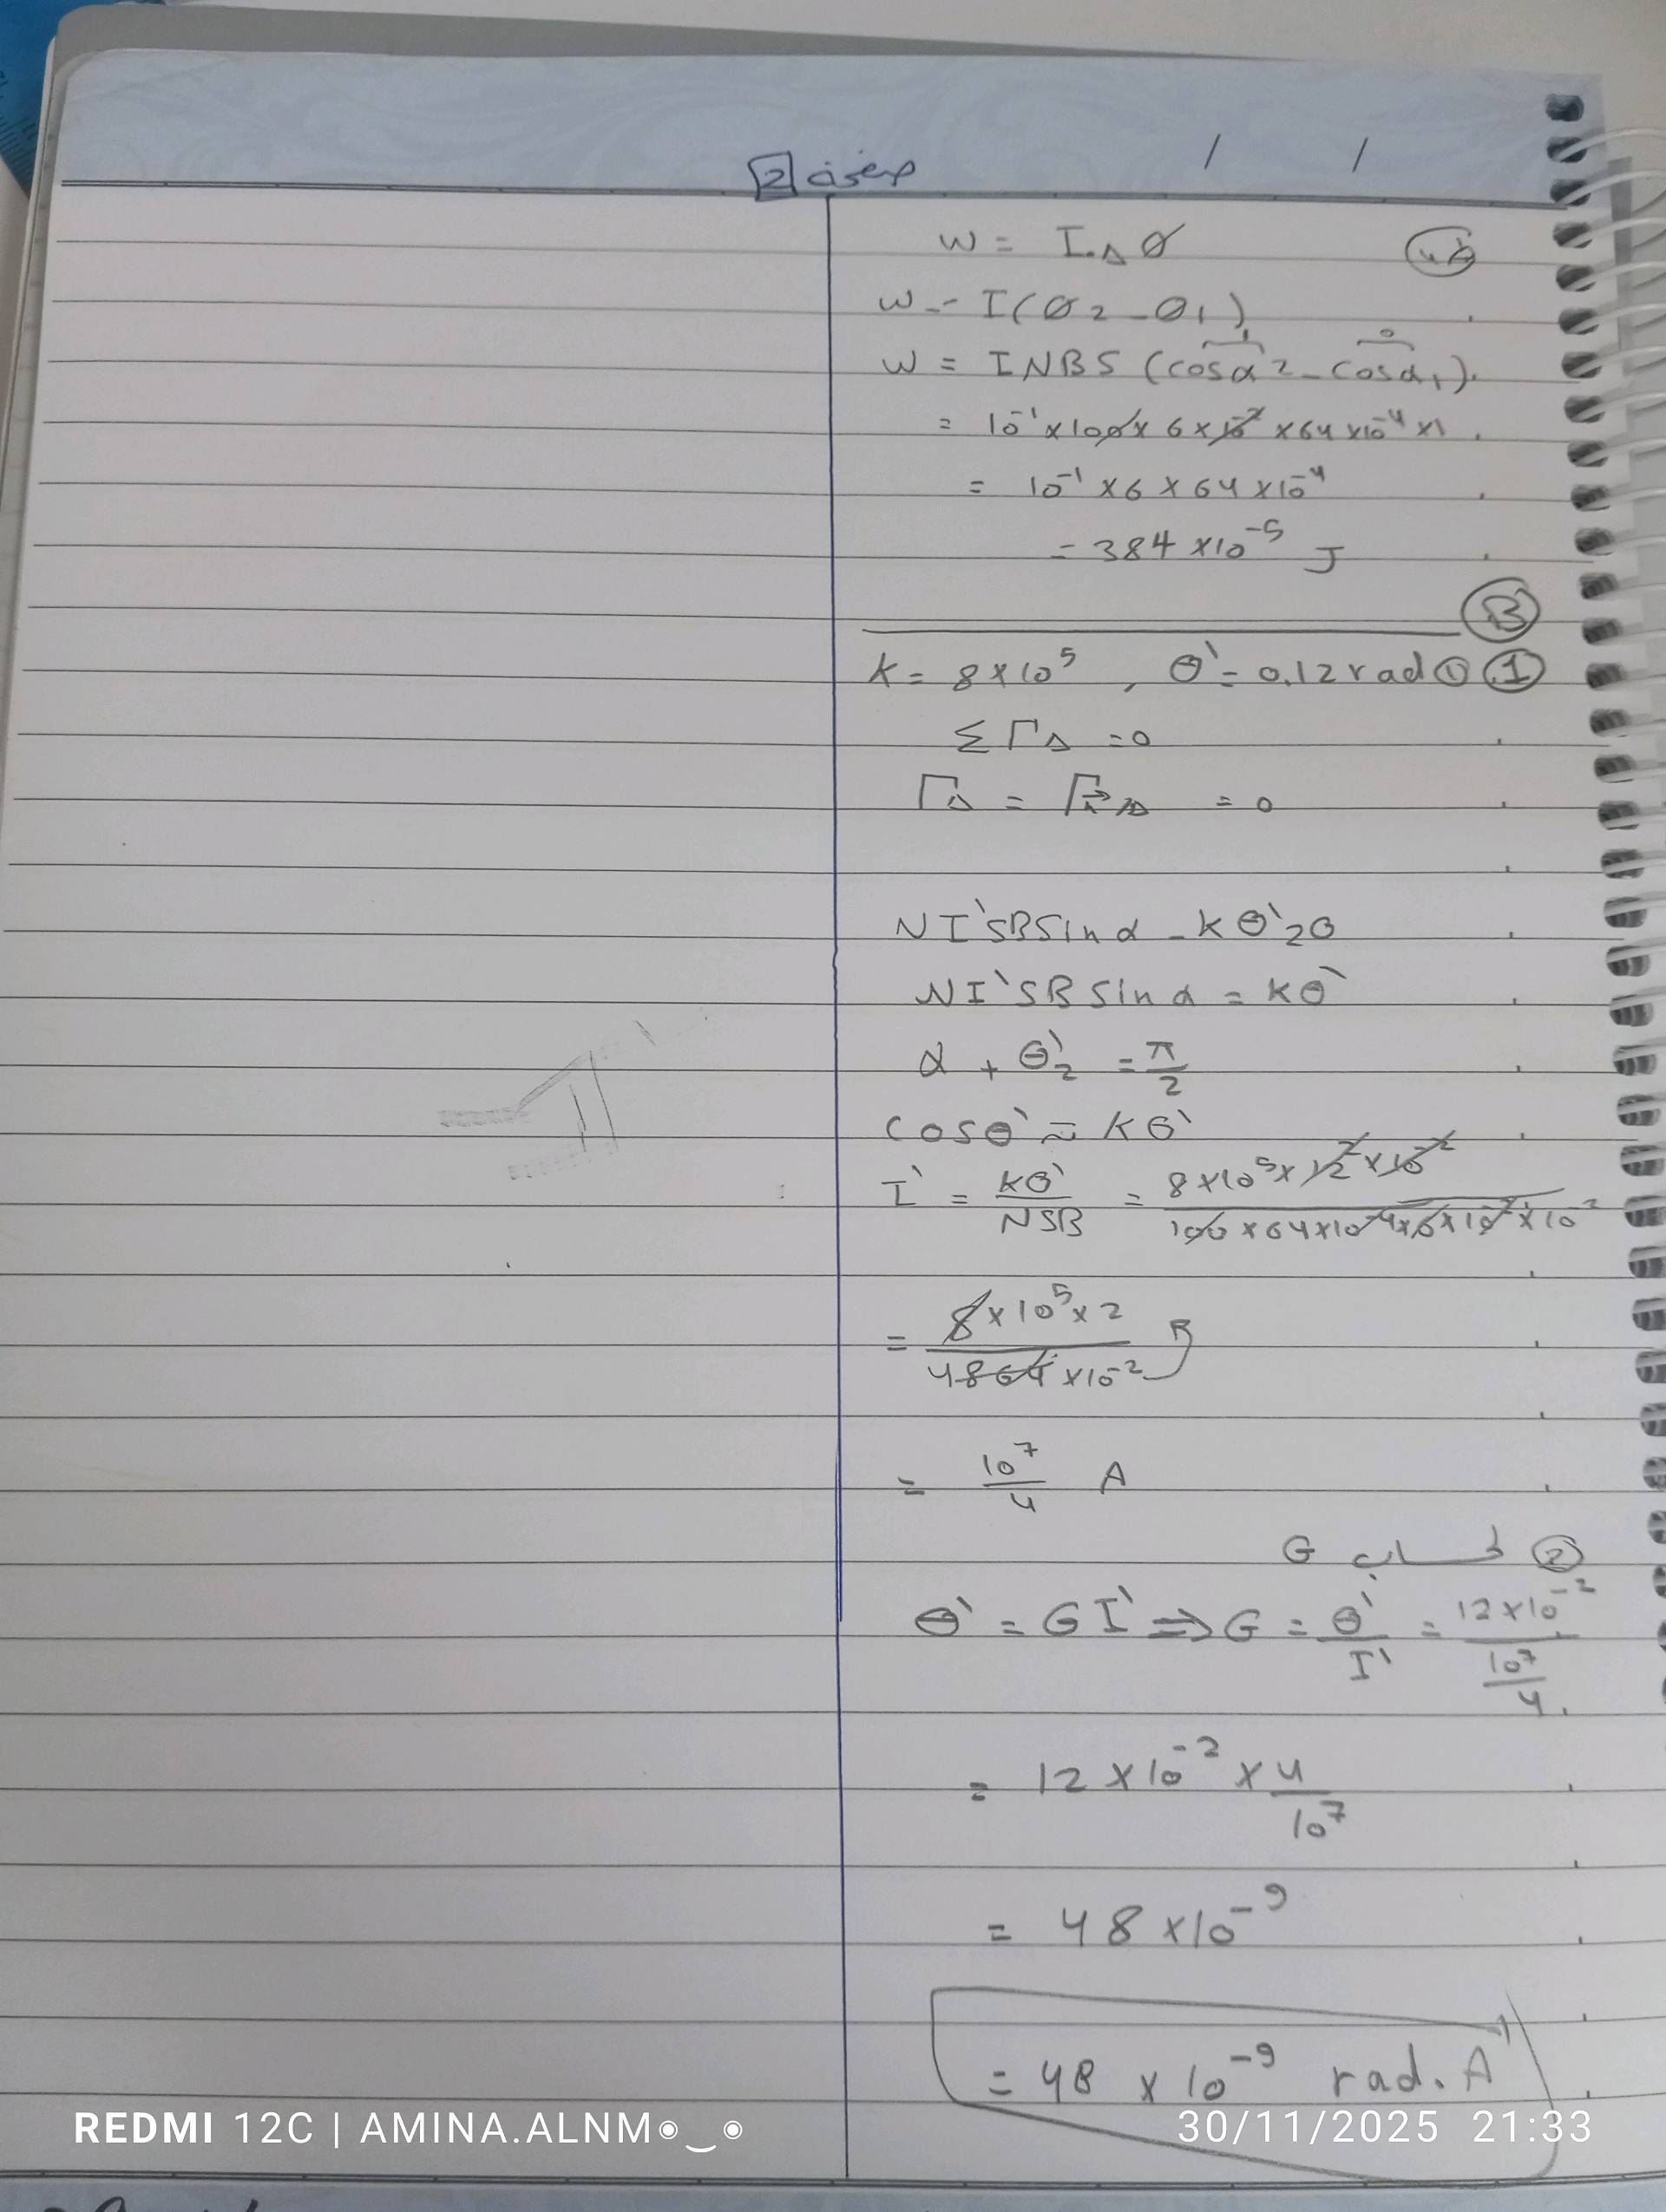 2
/ /
W = I.ΔØ
W = I(Ø2 - Ø1)
W = INBS (cosα2 - cosα1).
= 10⁻¹ x 100 x 6 x 10⁻² x 64 x 10⁻⁴ x 1
= 10⁻¹ x 6 x 64 x 10⁻⁴
= 384 x 10⁻⁵ J
B
K = 8 x 10⁵ , θ' = 0.12 rad ① ①
Σ ΓΔ = 0
NI'SB Sin α - Kθ' = 0
NI'SB Sin α = Kθ'
α + θ'₂ = π/2
cosθ' ≈ Kθ'
I' = Kθ'/NSB = 8 x 10⁵ x 12 x 10⁻² / 100 x 64 x 10⁻⁴ x 6 x 10⁻² x 10²
= 8 x 10⁵ x 2 / 48 64 x 10⁻²
= 10⁷/4 A
② لحساب G
θ' = GI' ⇒ G = θ'/I' = 12 x 10⁻² / 10⁷/4
= 12 x 10⁻² x 4/10⁷
= 48 x 10⁻⁹
= 48 x 10⁻⁹ rad. A⁻¹
REDMI 12C | AMINA.ALNM◉‿◉
30/11/2025 21:33